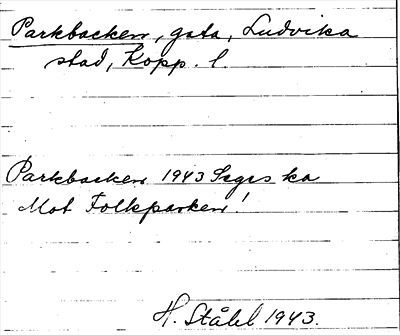 Parkbacken, gata, Ludvika
stad, Kopp. l.
Parkbacken 1943 Sägs ka
Mot Folkparken!
H. Ståhl 1943.